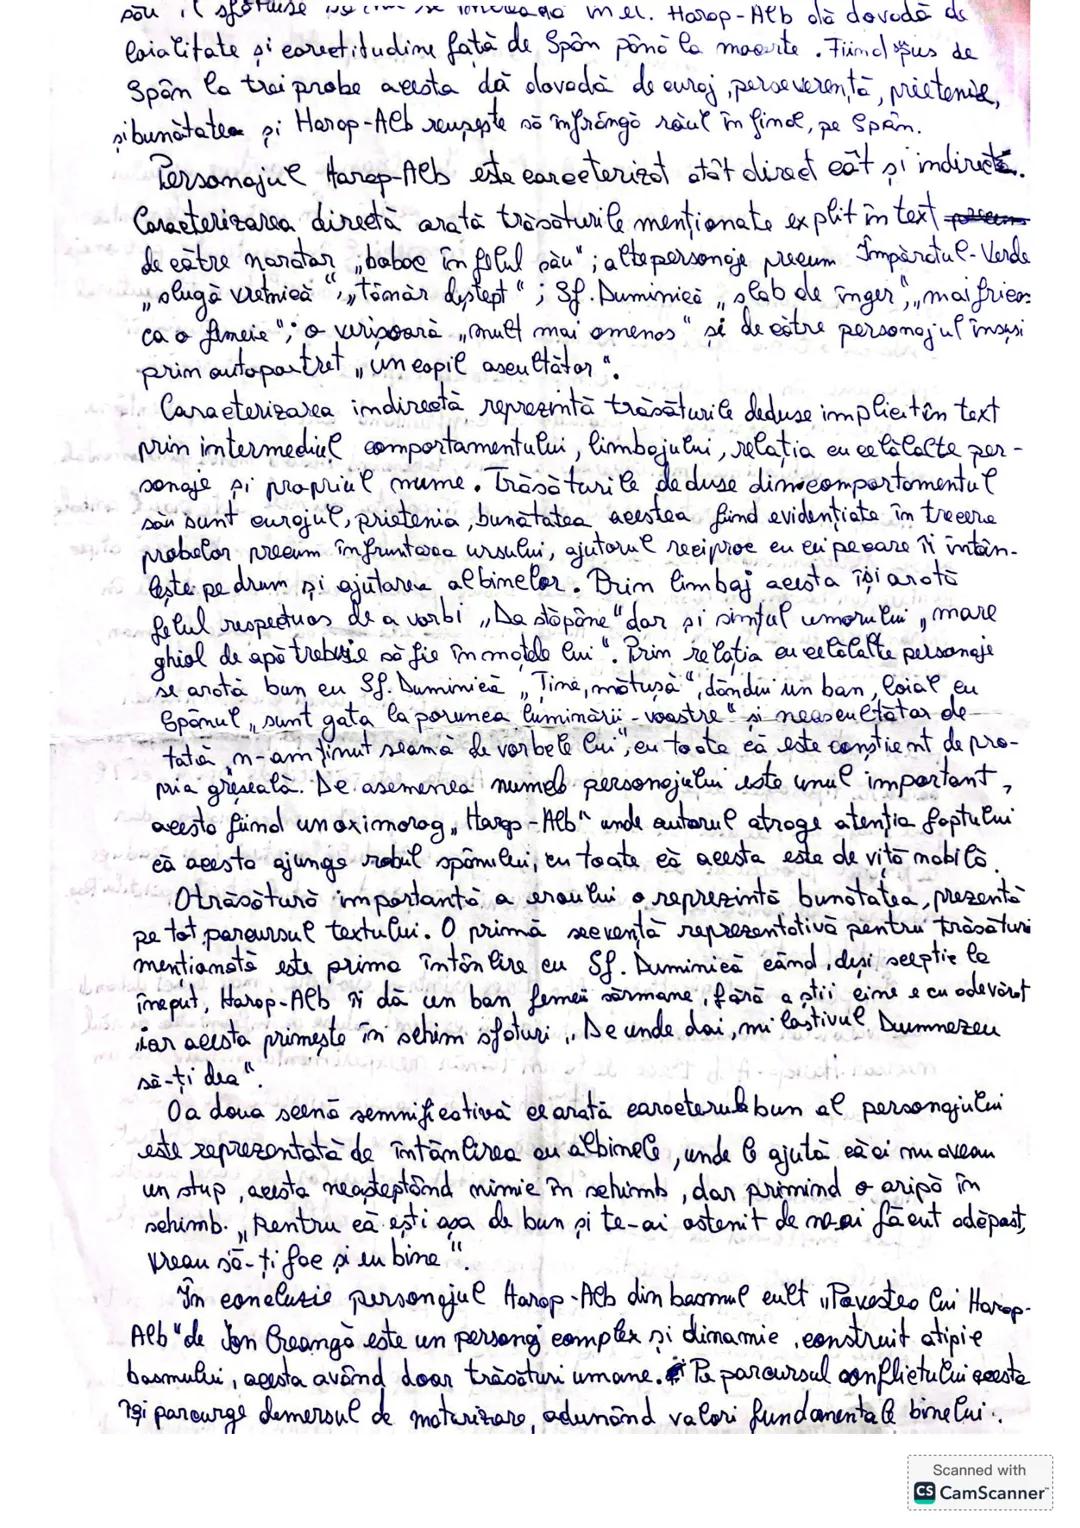 său, îl
mel. Harap-Alb dă dovadă de
loialitate și corectitudine față de Spân până la moarte. Fiind pus de
Spân la trei probe acesta dă dovadă de curaj, perseverență, prietenie,
și bunătatea și Harap-Alb reușește să înfrângă răul în final, pe Spân.
Personajul Harap-Alb este caracterizat atât direct cât și indirect.
Caracterizarea directă arată trăsăturile menționate explit în text
de către narator „boboc în felul său"; alte personaje precum Împăratul-Verde
„slugă vrednică", „tânăr deștept"; Sf. Duminică „slab de înger", „mai fricos
ca o femeie"; o verișoară „mult mai omenos" și de către personajul însuși
prin autoportret „un copil ascultător".
Caracterizarea indirectă reprezintă trăsăturile deduse implicit în text
prin intermediul comportamentului, limbajului, relația cu celălalte per-
sonaje și propriul nume. Trăsăturile deduse din comportamentul
său sunt curajul, prietenia, bunătatea acestea fiind evidențiate în trecere
probelor precum înfruntarea ursului, ajutorul reciproc cu cei pe care îi întâl-
nește pe drum și ajutarea albinelor. Prin limbaj acesta își arată
felul respectuos de a vorbi „Da stăpâne" dar și simțul umorului „mare
ghiol de apă trebuie să fie în mațele lui". Prin relația cu celălalte personaje
se arată bun cu Sf. Duminică „Tine, mătușă", dându-i un ban, loial cu
Spânul „sunt gata la porunca luminării-voastre" și neascultător de
tatăl „n-am ținut seamă de vorbele lui", cu toate că este conștient de pro-
pria greșeală. De asemenea numele personajului este unul important,
acesta fiind un oximoron „Harap-Alb" unde autorul atrage atenția faptului
că acesta ajunge robul spânului, cu toate că acesta este de viță nobilă.
O trăsătură importantă a eroului o reprezintă bunătatea, prezentă
pe tot parcursul textului. O primă secvență reprezentativă pentru trăsături
menționată este prima întâlnire cu Sf. Duminică când, deși sceptic la
început, Harap-Alb îi dă un ban femeii sărmane, fără a știi cine e cu adevărat
iar acesta primește în schimb sfaturi „De unde dai, milostivul Dumnezeu
să-ți dea".
O a doua scenă semnificativă ce arată caracterul bun al personajului
este reprezentată de întâlnirea cu albinele, unde le ajută că ei nu aveau
un stup, acesta neașteptând nimic în schimb, dar primind o aripă în
schimb. „Pentru că ești așa de bun și te-ai ostenit de ne-ai făcut adăpost,
vreau să-ți fac și eu bine".
În concluzie personajul Harap-Alb din basmul cult „Povestea lui Harap-
Alb" de Ion Creangă este un personaj complex și dinamic, construit atipic
basmului, acesta având doar trăsături umane. Pe parcursul conflictului acesta
își parcurge demersul de maturizare, adunând valori fundamentale binelui.
Scanned with
CS CamScanner